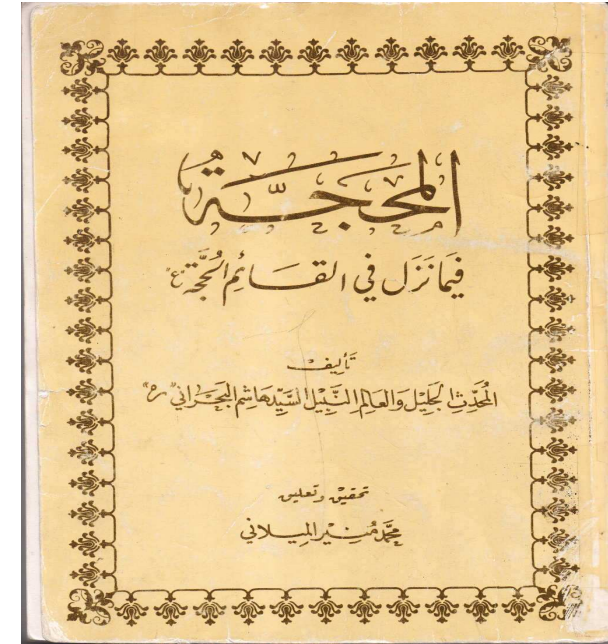 المحجّة
فيما نزل في القائم الحجّة ع
تأليف
المحدّث الجليل والعالم النّبيل السّيّد هاشم البحراني "ره"
تحقيق وتعليق
محمّد منير الميلاني